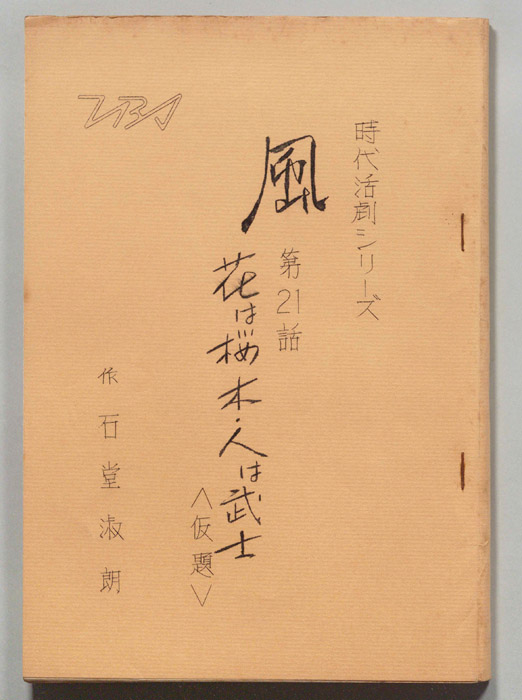 時代活劇シリーズ
風
第21話
花は桜木・人は武士
<仮題>
作 石堂淑朗
TBS